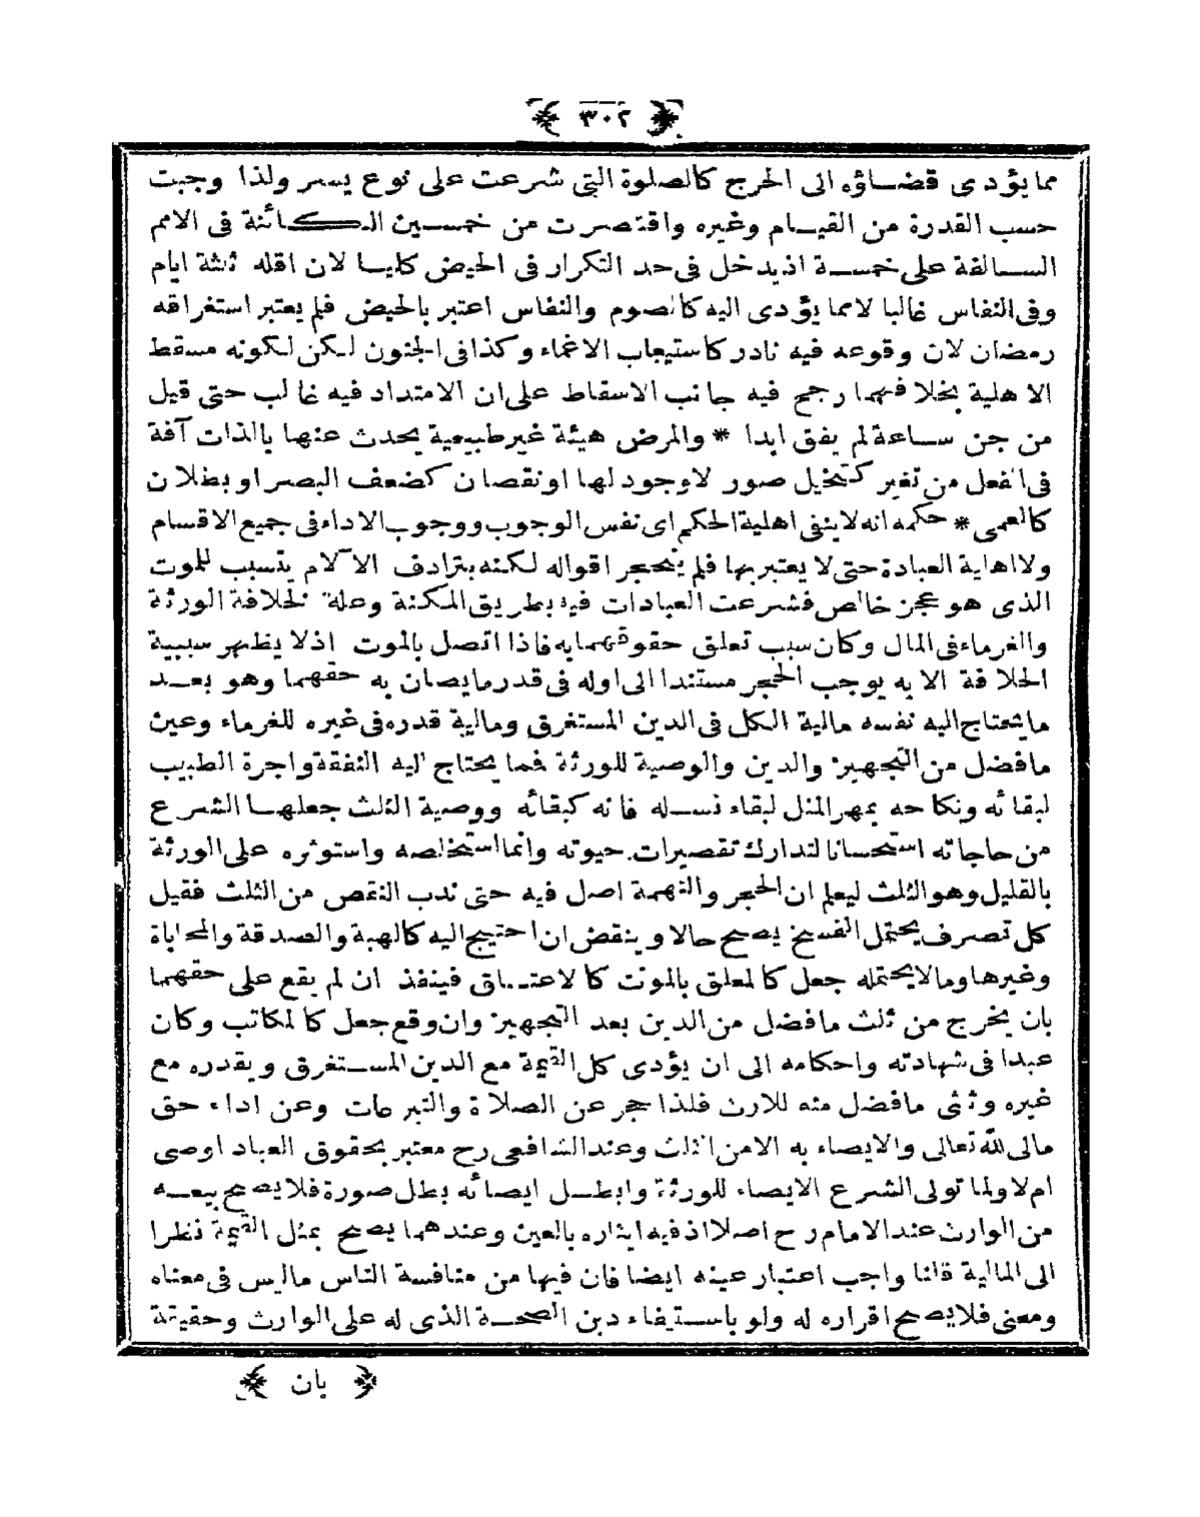 ﴿ ٣٠٢ ﴾
مما يؤدى قضاؤه الى الحرج كالصلوة التى شرعت على نوع يسر ولذا وجبت
حسب القدرة من القيام وغيره واقتصرت من خمسين الكائنة فى الامم
السالفة على خمسة اذيدخل فى حد التكرار فى الحيض كليا لان اقله ثلثة ايام
وفى النفاس غالبا لامما يؤدى اليه كالصوم والنفاس اعتبر بالحيض فلم يعتبر استغراقه
رمضان لان وقوعه فيه نادر كاستيجاب الاغماء وكذا فى الجنون لكن لكونه مسقط
الاهلية بخلافهما رجح فيه جانب الاسقاط على ان الامتداد فيه غالب حتى قيل
من جن ساعة لم يفق ابدا * والمرض هيئة غير طبيعية يحدث عنها بالذات آفة
فى الفعل من تغير كتخيل صور لاوجود لها او نقصان كضعف البصر او بطلان
كالعمى * حكمه انه لاينفى اهلية الحكم اى نفس الوجوب ووجوب الاداء فى جميع الاقسام
ولا اهلية العبادة حتى لا يعتبر بها فلم ينحجر اقواله لكنه بترادف الآلام يتسبب للموت
الذى هو عجز خالص فشرعت العبادات فيه بطريق المكنة وعلة لخلافة الورثة
والغرماء فى المال وكان سبب تعلق حقوقهما به فاذا اتصل بالموت اذلا يظهر سببية
الخلافة الا به يوجب الحجر مستندا الى اوله فى قدر مايصان به حقهما وهو بعد
مايحتاج اليه نفسه مالية الكل فى الدين المستغرق ومالية قدره فى غيره للغرماء وعين
مافضل من التجهيز والدين والوصية للورثة فما يحتاج اليه النفقة واجرة الطبيب
لبقائه ونكاحه بمهر المثل لبقاء نسله فانه كبقائه ووصية الثلث جعلها الشرع
من حاجاته استحسانا لتدارك تقصيرات حيوته وانما استخلصه واستوثره على الورثة
بالقليل وهو الثلث ليعلم ان الحجر والتهمة اصل فيه حتى ندب النقص من الثلث فقيل
كل تصرف يحتمل الفسخ يصح حالا وينقض ان احتيج اليه كالهبة والصدقة والمحاباة
وغيرها ومالايحتمله جعل كالمعلق بالموت كالاعتاق فينفذ ان لم يقع على حقهما
بان يخرج من ثلث مافضل من الدين بعد التجهيز وان وقع جعل كالمكاتب وكان
عبدا فى شهادته واحكامه الى ان يؤدى كل القيمة مع الدين المستغرق وبقدره مع
غيره وثلثى مافضل منه للارث فلذا حجر عن الصلاة والتبرعات وعن اداء حق
مالى لله تعالى والايصاء به الا من الثلث وعند الشافعى رح معتبر بحقوق العباد اوصى
ام لا ولما تولى الشرع الايصاء للورثة وابطل ايصائه بطل صورة فلايصح بيعه
من الوارث عند الامام رح اصلا اذ فيه ايثاره بالعين وعندهما يصح بمثل القيمة نظرا
الى المالية قلنا واجب اعتبار عينه ايضا فان فيها من منافسة الناس ماليس فى معناه
ومعنى فلايصح اقراره له ولو باستيفاء دين الصحة الذى له على الوارث وحقيقة
﴿ بان ﴾